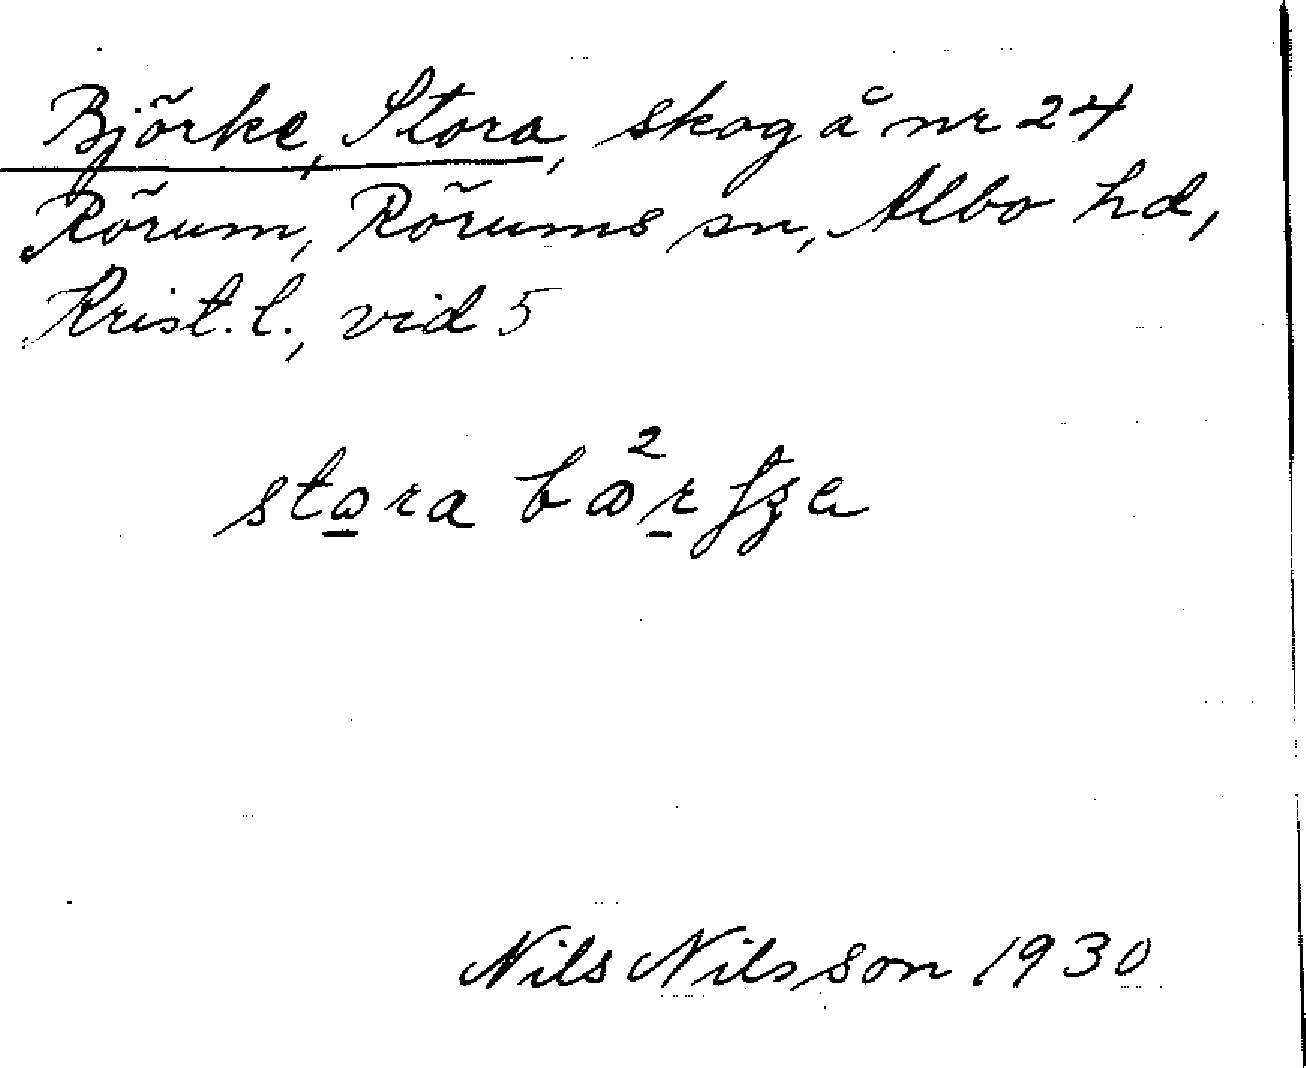 Björke, Stora, skog å nr 24
Rörum, Rörums sn, Albo hd,
Krist. l., vid 5
stora
Nils Nilsson 1930